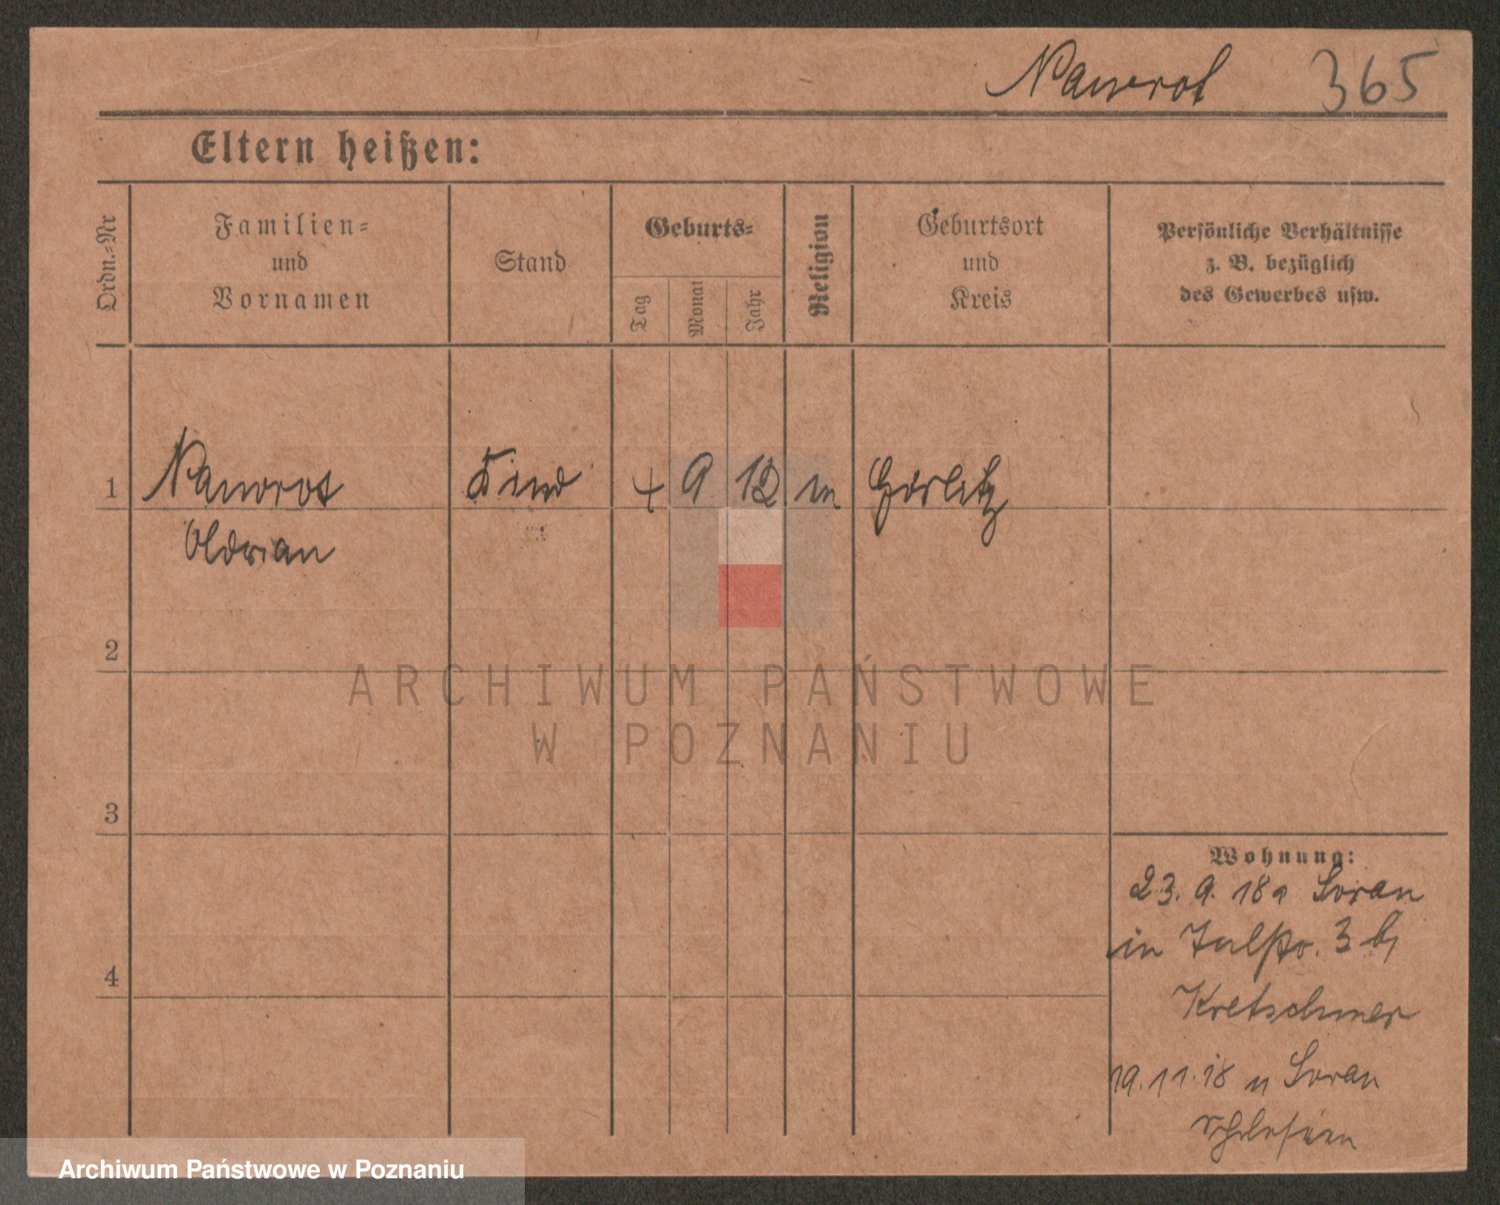 Nawrot 365
Eltern heißen:
Ordn.=Nr
Familien=
und
Vornamen
Stand
Geburts=
Tag
Monat
Jahr
Religion
Geburtsort
und
Kreis
Persönliche Verhältnisse
z. B. bezüglich
des Gewerbes usw.
1 Nawrot Kind 4 9 12 Görlitz
2
ARCHIWUM PAŃSTWOWE
W POZNANIU
3
4
Wohnung:
23. 9. 18 Soran
in Talstr. 3 b/
Kretschmer
19.11.18 n Soran
Archiwum Państwowe w Poznaniu